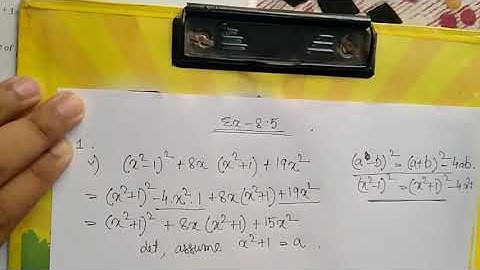 Ex-8.5
1.
i) (x²-1)² + 8x (x²+1) + 19x²
= (x²+1)² - 4.x².1 + 8x(x²+1) + 19x²
= (x²+1)² + 8x (x²+1) + 15x²
let, assume x²+1 = a.
(a-b)² = (a+b)² - 4ab.
(x²-1)² = (x²+1)² - 4x²